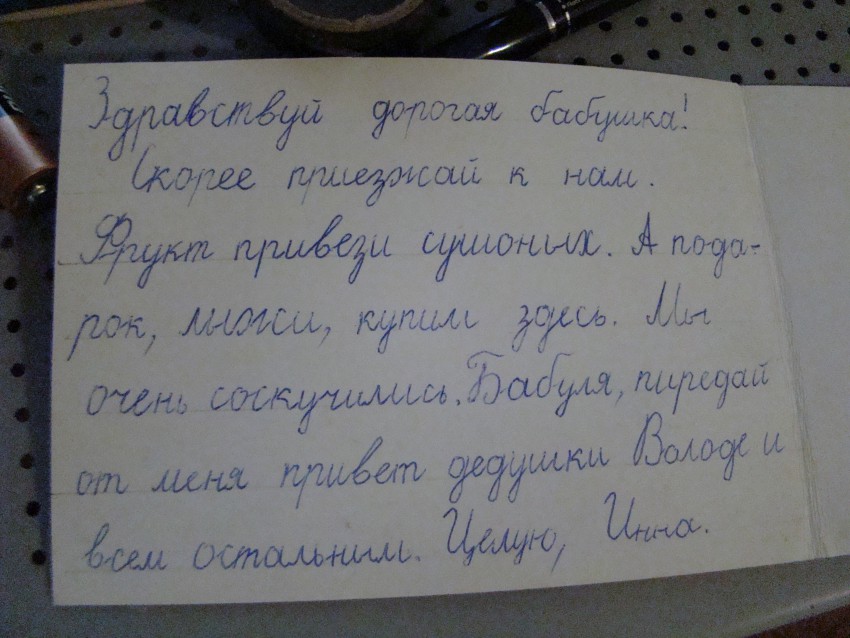 Здравствуй дорогая бабушка!
Скорее приезжай к нам.
Фрукт привези сушоных. А пода-
рок, лыжи, купим здесь. Мы
очень соскучились. Бабуля, пиредай
от меня привет дедушки Володе и
всем остальным. Целую, Инна.